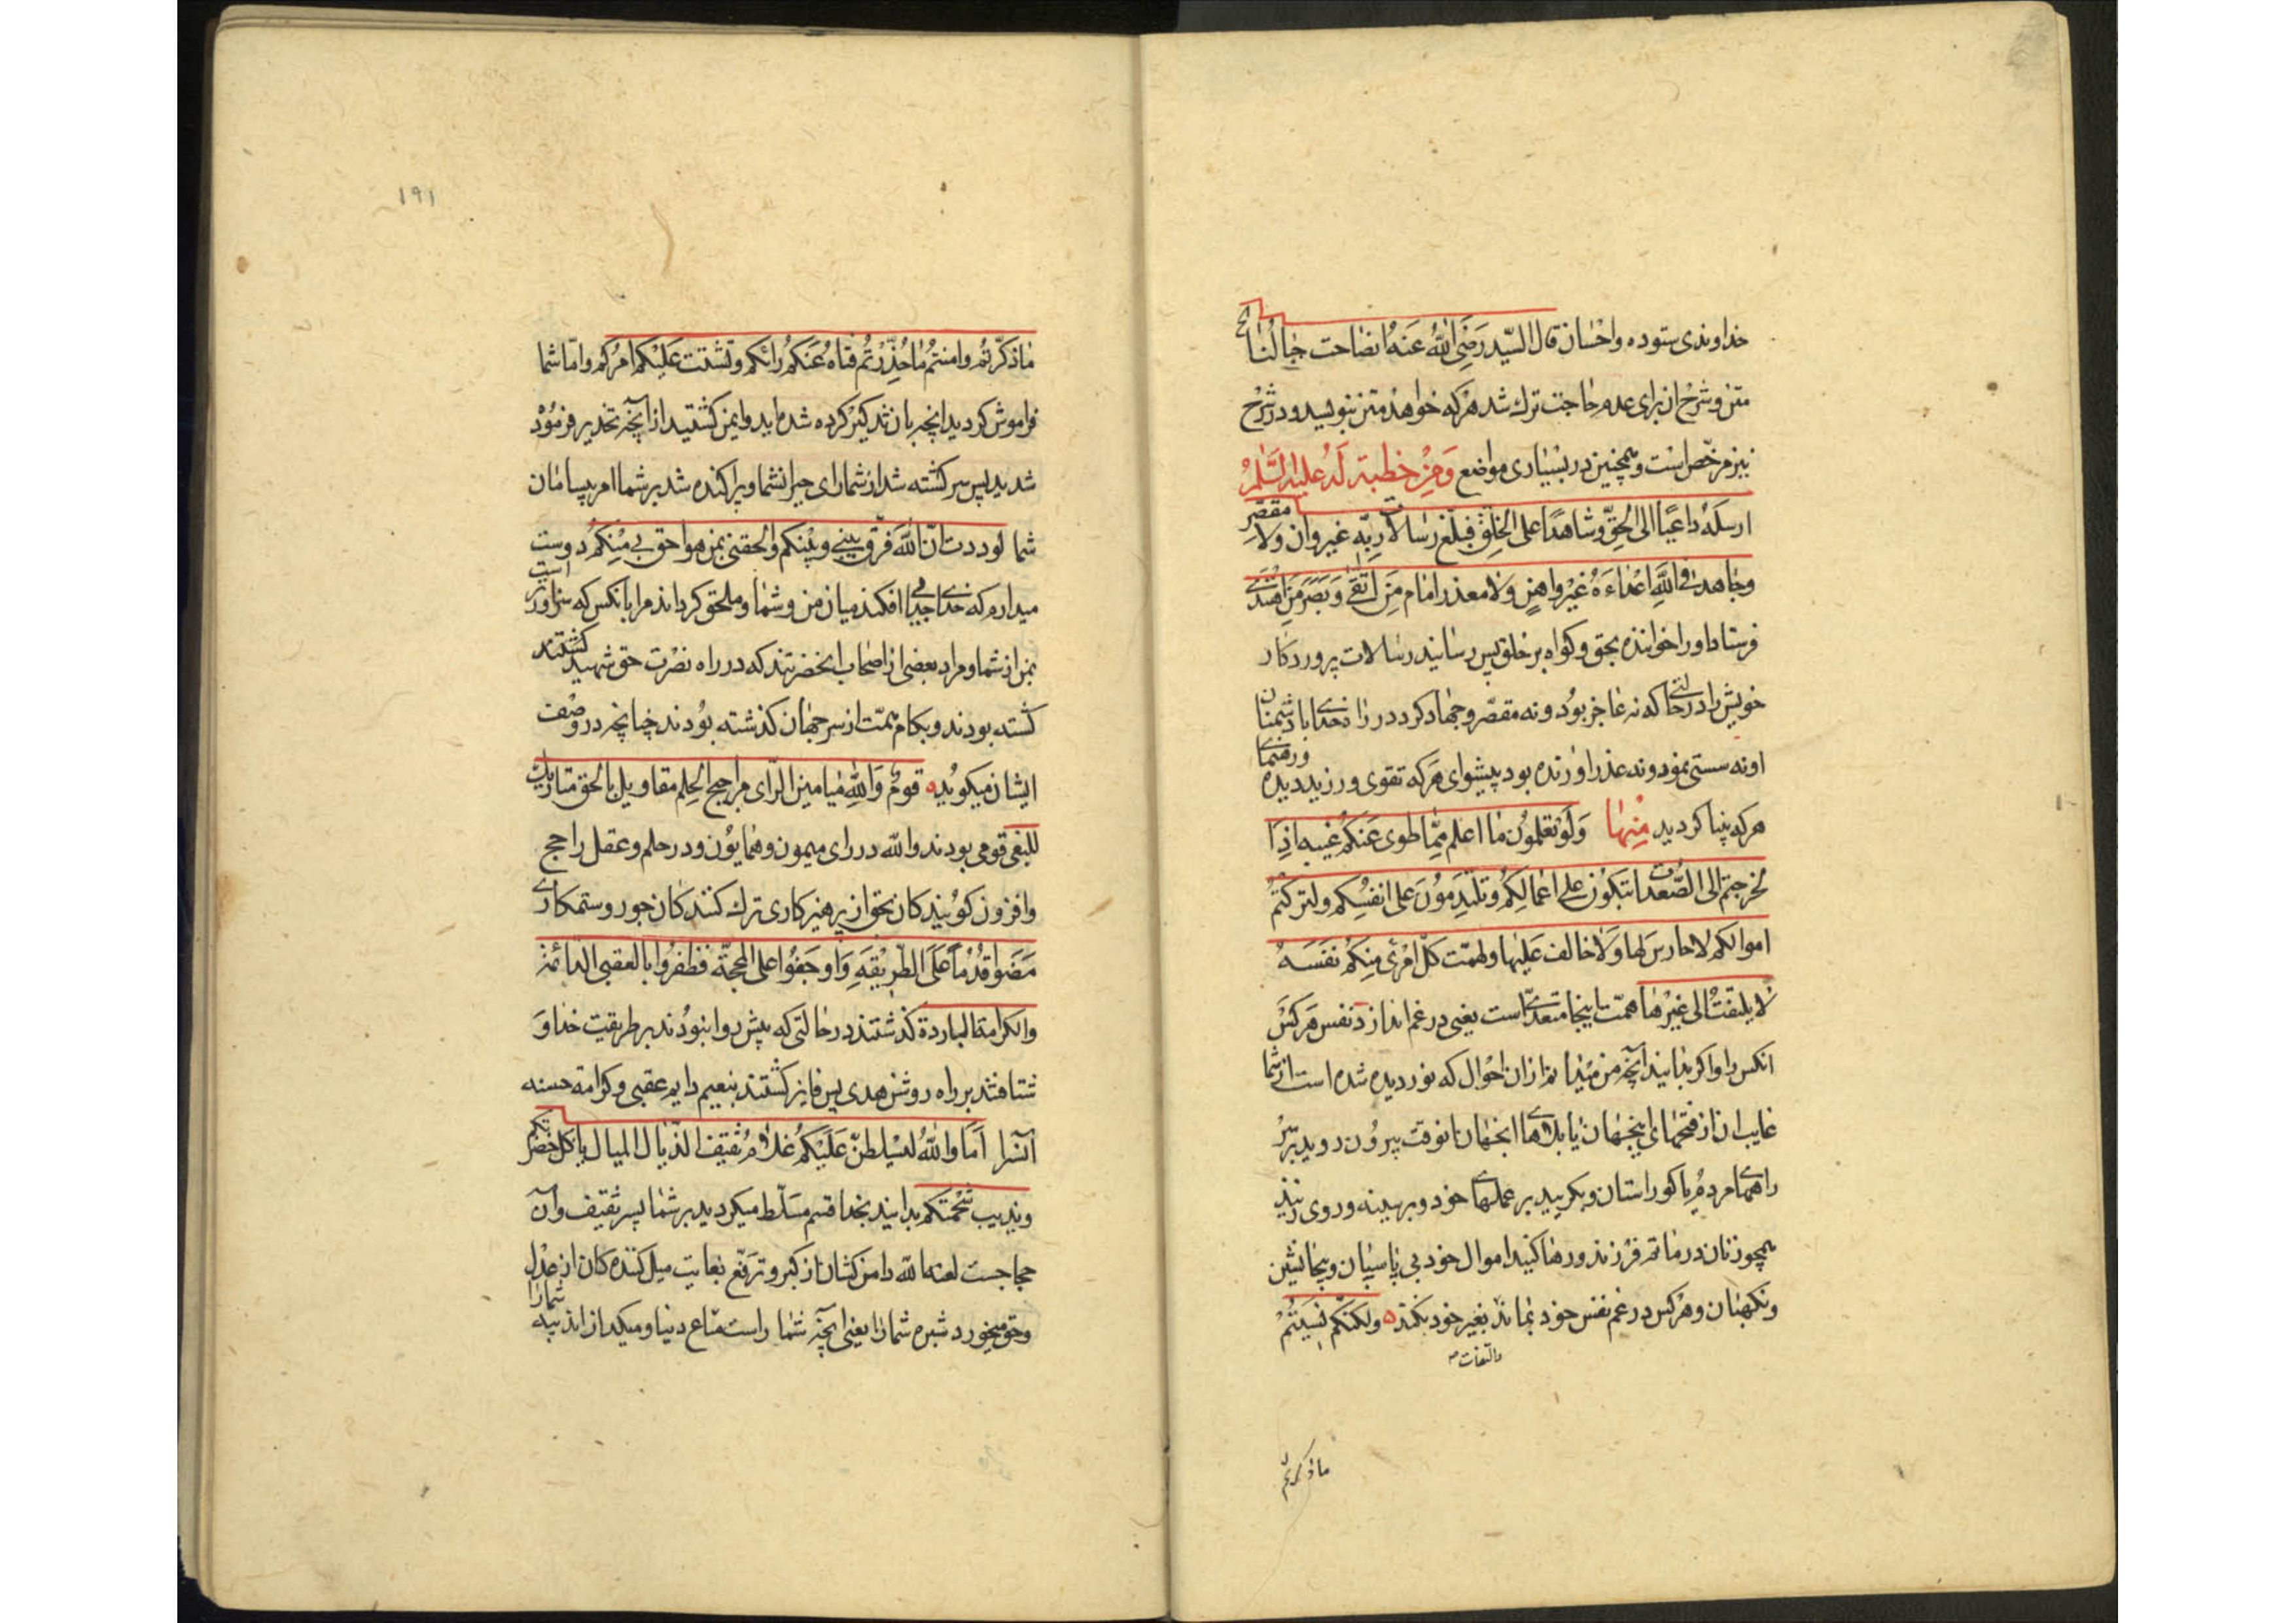 خداوندی ستوده واحسان قال السیّد رَضِیَ اللهُ عَنهُ انصاحت جبالُنا الخ
متن و شرح ان برای عدم حاجت ترك شد هرکه خواهد متن بنویسد و در شرح
نیز مرخّص است و همچنین در بسیاری مواضع وَمِن خطبة لَهُ علیه السَّلٰمُ
ارسلَهُ داعیًا الی الحَقِّ وشاهدًا علی الخلق فبلّغ رسالات ربّه غیر وان ولا مقصّر
وجاهد فی اللهِ اعداءَهُ غَیْر واهنٍ وَلا معذر امام مَنِ اتَّقیٰ وَبَصَر مَنِ اهتدی
فرستاد او را خواننده بحق وکواه بر خلق پس رسانید رسالات پروردکار
خویش را در حالتی که نه عاجز بود و نه مقصّر وجهاد کرد در راه خدای با دشمنان
او نه سستی نمود و نه عذر اورنده بود پیشوای هرکه تقوی ورزید دیده و رهنمای
هرکه بینا کردید مِنها وَلَو تعلمُون ما اعلم ممّا طوی عَنکُم غیبه اذًا
لخرجتم الی الصُّعدات تبکون علی اعمالِکُم وتلتَدِمُونَ علی انفسِکم ولترکتُم
اموالکم لا حارسَ لها وَلا خالف علیها ولهمّت کلّ امْرئٍ منِکُم نفسَهُ
لا یلتفتُ الی غیْرها همّت اینجا متعدّی است یعنی در غم اندازد نفس هر کس
انکس را و اکر بدانید آنچه من میدانم از ان احوال که نوردیده شده است از شما
غایب ان از فتحهای اینجهان یا بلاهای انجهان انوقت بیرون روید بر سر
راههای مردم یا کورستان و بکریید بر عملهای خود و بر سینه و روی زنید
همچو زنان در ماتم فرزند و رها کنید اموال خود بی پاسبان و بیجانشین
ونکهبان و هرکس در غم نفس خود بماند بغیر خود نکند ولکنّکم نسیتُمْ
والتفات
ما ذکرتم
۱۹۱
ماذکّرتُم وامنتُم ما حُذِّرتُم فتاهَ عَنکُم رائکم وتشتّت عَلَیکُم امرُکم وامّا شما
فراموش کردید انچه بان تذکیر کرده شده اید و ایمن کشتید از آنچه تحذیر فرموده
شدید پس سرکشته شد از شما رای حیرانشما و پراکنده شد بر شما امر بیسامان
شما لوددت انّ اللهَ فرّق بینی وبَیْنکم والحقنی بمن هو احق بی مِنْکُم دوست
میدارم که خدای جدایی افکند میان من و شما و ملحق کرداند مرا بانکس که سزاوارتر است
بمن از شما و مراد بعضی از اصحاب انحضرتند که در راه نصرت حق شهید کشتند
کشته بودند و بکام همّت از سر جهان کذشته بودند چنانچه در وصف
ایشان میکوید قومٌ وَاللهِ میامین الرّای مراجیح الحِلم مقاویل بالحق متاریك
للبغی قومی بودند والله در رای میمون و همایون و در حلم و عقل راجح
وافزون کویند کان بحق از پرهیزکاری ترك کنندکان جور و ستمکاری
مَضَوا قُدُمًا عَلَی الطّریقةِ وَاوجَفُوا علی المحجّة فظفرُوا بالعقبی الدائمة
والکرامة الباردة کذشتند در حالتی که پیشروا بنودند بر طریقت خدا وَ
شتافتند بر راه روشن هدی پس فایز کشتند بنعیم دایم عقبی و کرامة حسنه
آنسرا اَمَا واللهُ لیسلطنّ عَلَیْکُم غلامُ ثقیف الذّیال المیال یاکل خضرتکم
ویذیب شحمتکم بدانید بخدا قسم مسَلّط میکردد بر شما پسر ثقیف وآن
حجاجست لعنه الله دامن کشان از کبر و ترفّع بغایت میل کننده کان از عدل
وحق میخورد سبزه شما را یعنی آنچه شما راست متاع دنیا و میکدازاند پیه شما را